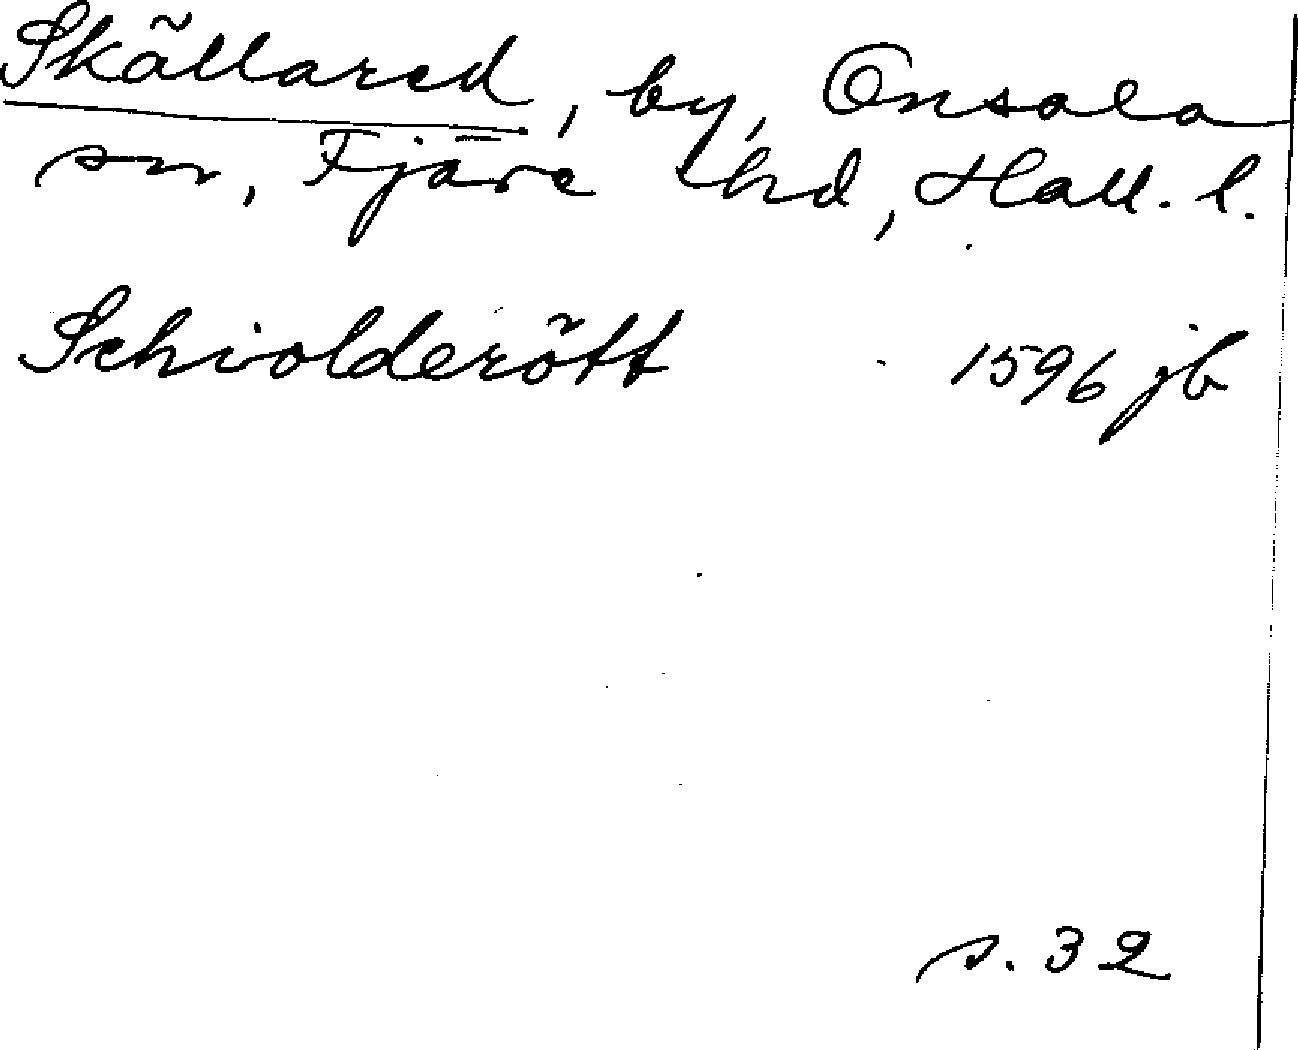 Skällared, by, Onsala
sn, Fjäre hd, Hall. l.
Schiolderött 1596 jb
s. 32